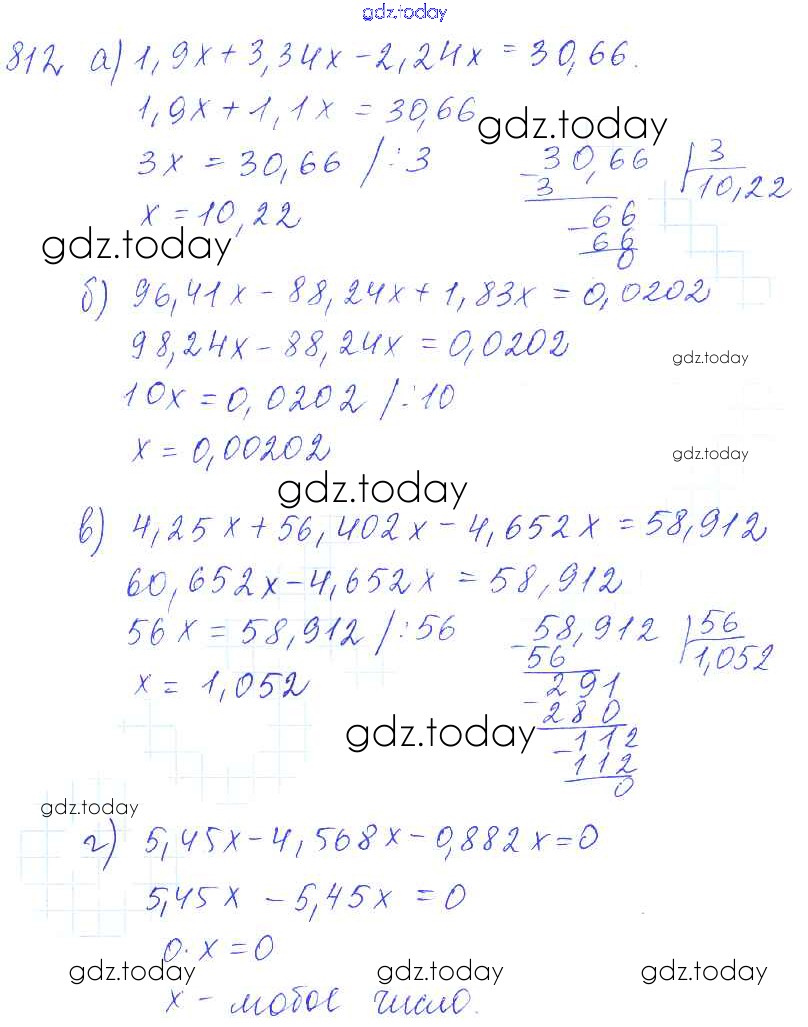 gdz.today
812 а) 1,9x + 3,34x - 2,24x = 30,66.
1,9x + 1,1x = 30,66
gdz.today
3x = 30,66 /:3
x = 10,22
30,66 | 3
- 3 | 10,22
- 66
66
0
gdz.today
б) 96,41x - 88,24x + 1,83x = 0,0202
98,24x - 88,24x = 0,0202
gdz.today
10x = 0,0202 /:10
x = 0,00202
gdz.today
gdz.today
в) 4,25x + 56,402x - 4,652x = 58,912
60,652x - 4,652x = 58,912
56x = 58,912 /:56
x = 1,052
- 58,912 | 56
56 | 1,052
- 291
280
- 112
112
0
gdz.today
gdz.today
г) 5,45x - 4,568x - 0,882x = 0
5,45x - 5,45x = 0
0·x = 0
gdz.today gdz.today gdz.today
x - любое число.